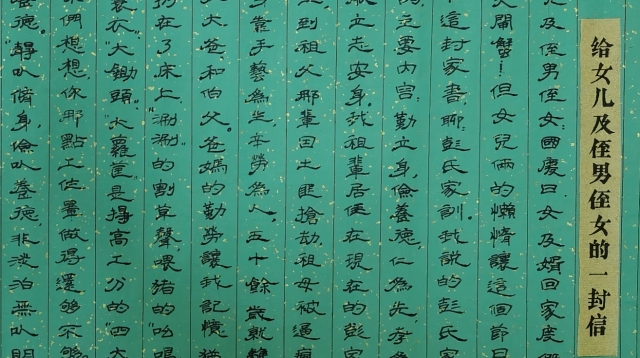 给女儿及侄男侄女的一封信
儿及侄男侄女:國慶日,女及婿回家度
大閘蟹!但女兒倆的懶惰讓這個節日
這封家書,聊彭氏家訓。我說的彭氏家
之要内容:勤立身,儉養德,仁為先,孝
立志安身。我祖輩居住在現在的彭家
到祖父那輩因土匪搶劫祖母被逼瘋
靠手藝為生,辛勞為人,五十餘歲就雙
大爸,和伯父。爸媽的勤勞讓我記憶猶
在了床上"涮涮"的割草聲喂猪的"吆唱
衣"大鋤頭""大籮筐"是掙高工分的"四大
們想想,你那點工作量做得還够不够
德。靜以脩身,儉以養德,非淡泊無以明